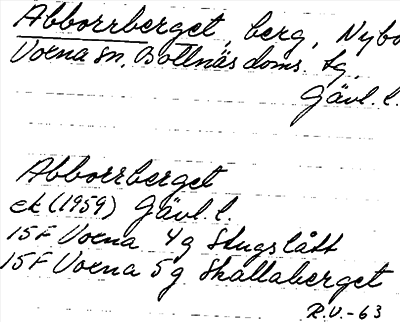 Abborrberget, berg, Nybo
Voxna sn, Bollnäs doms. tg,
Gävl. l.
Abborrberget
ek (1959) Gävl. l.
15F Voxna 4g Stugslått
15F Voxna 5g Skallaberget
R.V.-63